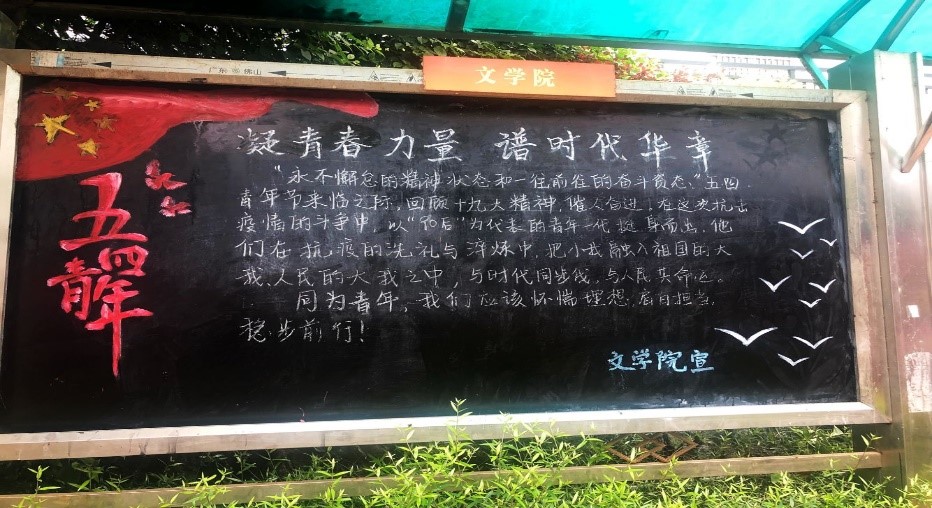 文学院
广东 佛山
凝青春力量 谱时代华章
"永不懈怠的精神状态和一往前往的奋斗姿态。"五四
青年节来临之际,回顾十九大精神,催人奋进,在这次抗击
疫情的斗争中,以"90后"为代表的青年一代挺身而出,他
们在抗疫的洗礼与淬炼中,把小我融入祖国的大
我、人民的大我之中,与时代同步伐,与人民共命运。
同为青年,我们应该怀揣理想,肩负担当,
稳步前行!
文学院宣
五四青年